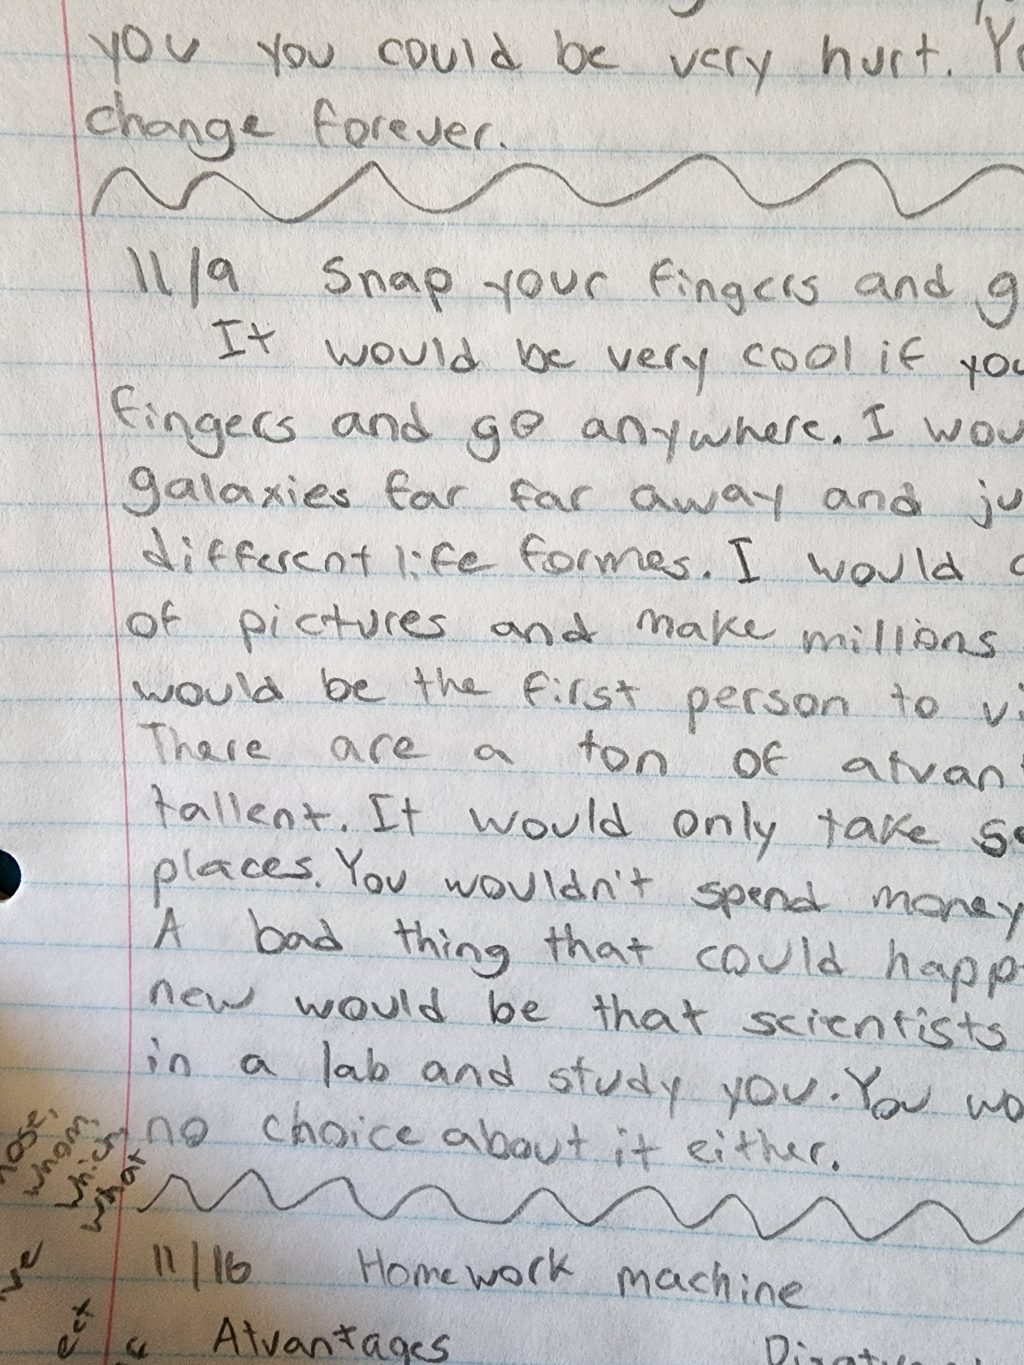 you you could be very hurt.
change forever.
11/9 Snap your fingers and
It would be very cool if
fingers and go anywhere. I
galaxies far far away and
different life formes. I would
of pictures and make millions
would be the first person to
There are a ton of
tallent. It would only take
places. You wouldn't spend money
A bad thing that could
new would be that scientists
in a lab and study you. You
no choice about it either.
whom,
which,
what
11/16 Homework machine
Atvantages